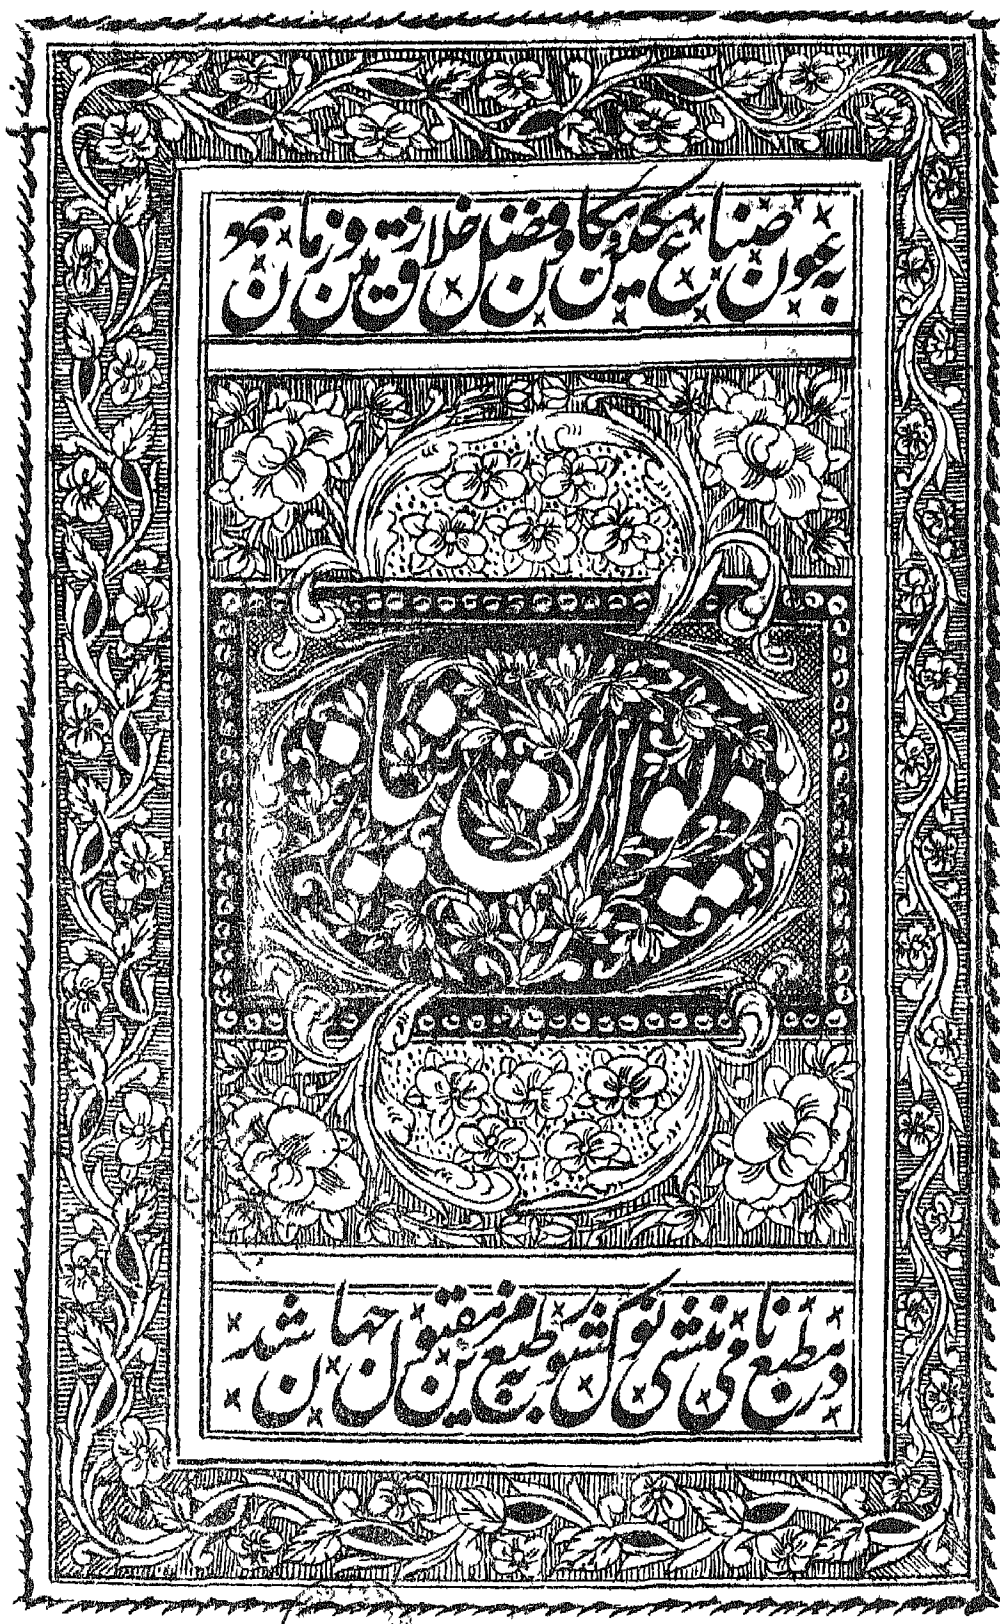 بعون صناع مکین و مکان و فضل خلاق زمین و زمان
دیوان نیاز
در مطبع نامی منشی نولکشور بطبع مزین مقبول جهانیان شد